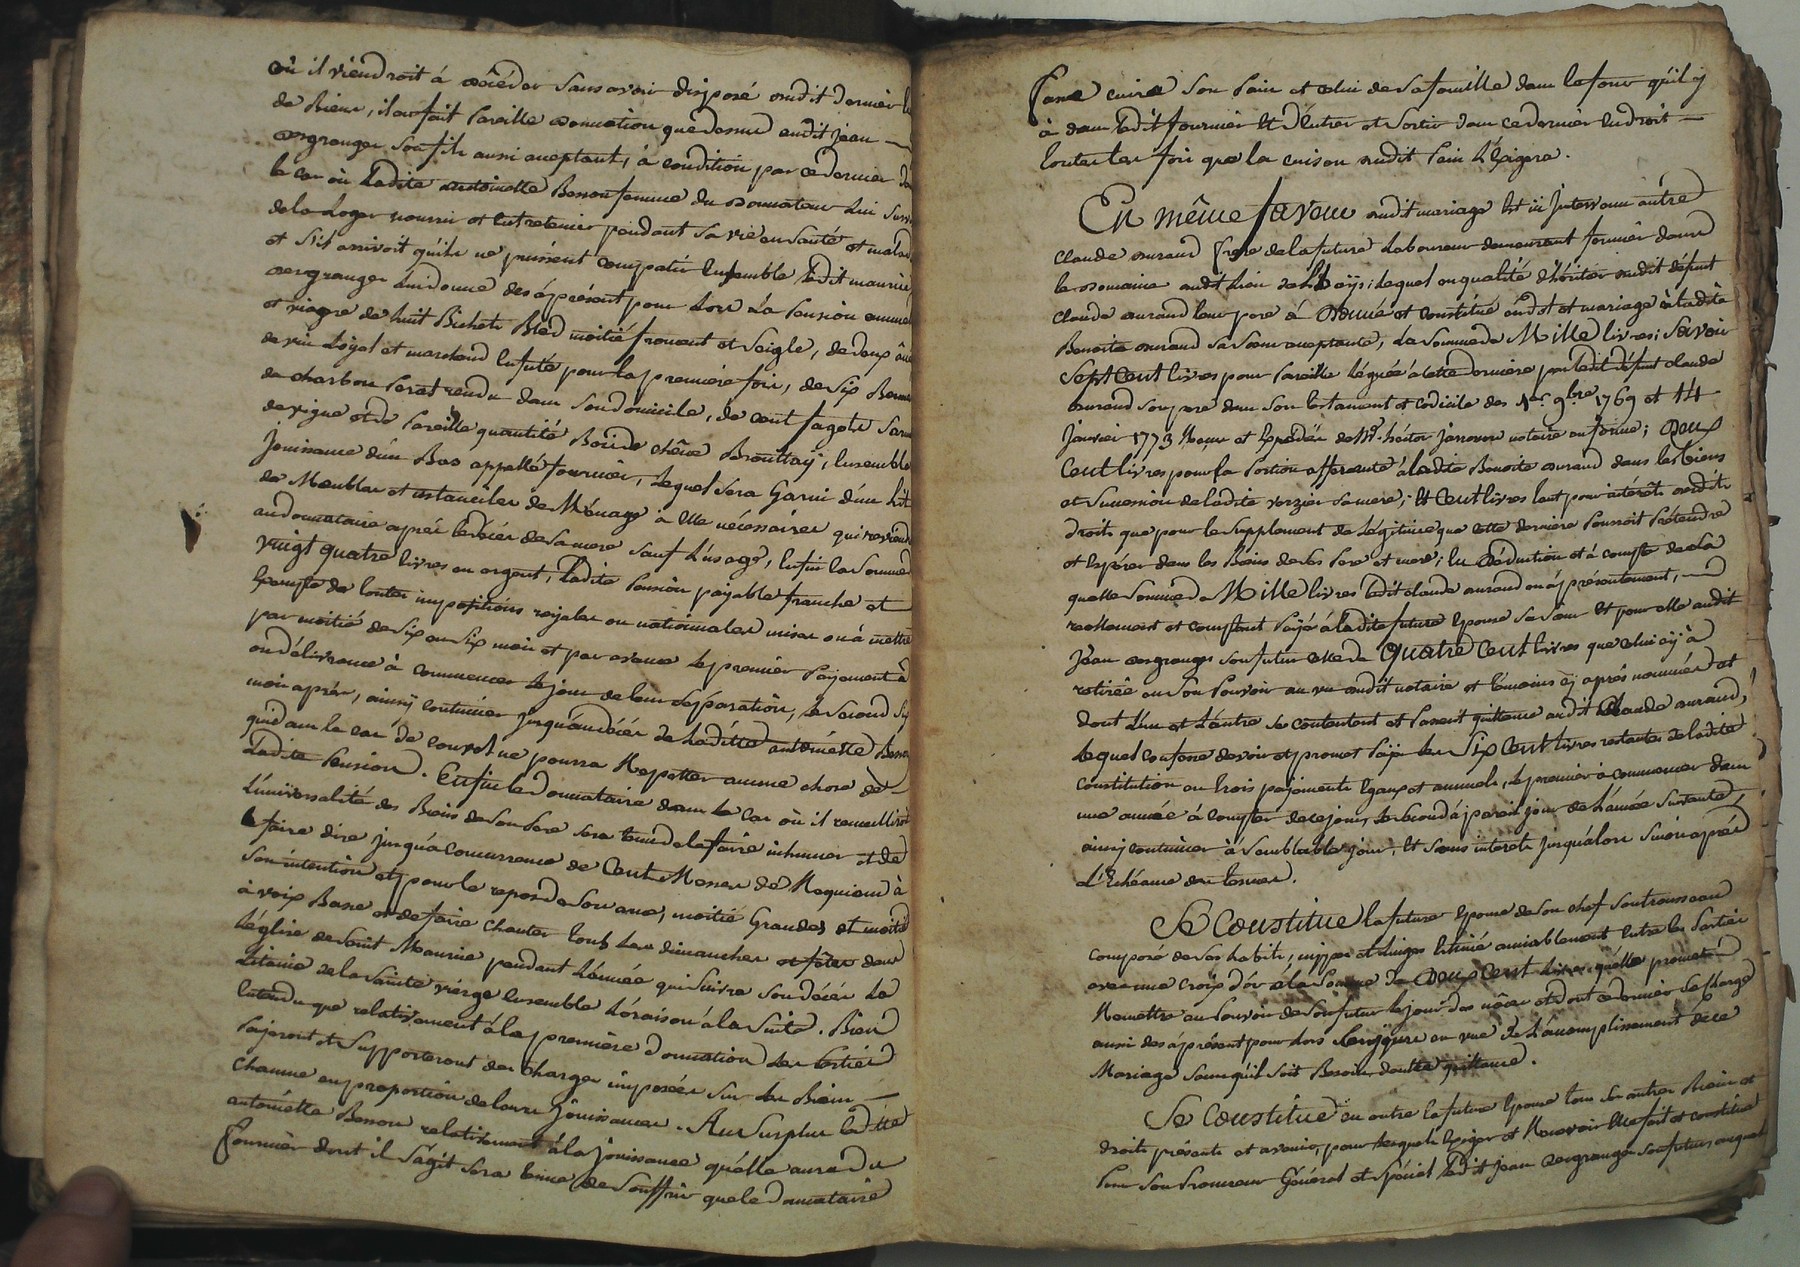 où il viendroit á décéder sans avoir disposé dudit dernier
de Biens, il en fait Pareille donnation que dessus audit jean
desgranges son fils aussi acceptant, á condition par ce dernier
le cas où Ladite antoinette Besson femme du donnateur Lui
de la Loger nourrir et Entretenir pendant sa vie en santé et
et s'il arrivoit qu'ils ne pussent compatir Ensemble Ledit maurice
desgranges lui donne dés áprésent pour Lors La Pension
et viagre de huit Bichets Bled moitié froment et Seigle, de deux
de vin Loyal et marchand Enfuté pour la première fois, de six Bennes
de charbon Perat rendu dans son domicile, de cent fagots
de vigne et de Pareille quantité Bois de chêne Ensemble
Jouissance d'un Bas appellé fournier, Lequel sera Garni d'un Lit
de Meubles et ustanciles de Ménage à Elle nécéssaires qui
au donnataire aprés le décés de sa mere sauf L'usage, Enfin la Somme
vingt quatre livres en argent, Ladite Pension payable franche et
Exempte de toutes impositions royales ou nationnales mises ou à mettre
par moitié de Six en Six mois et par avance Le premier Payement
ou délivrance à commencer le jour de leur séparation, le second
mois aprés, ainsy continüer jusqu'au décés de Laditte antoinette Besson
qui dans le cas de convol ne pourra Répetter aucune chose de
Ladite Pension. Enfin le Donnataire dans le cas où il recueilliroit
L'universalité des Biens de son Pere sera tenu de le faire inhumer et de
faire dire jusqu'à concurrence de Cent Messes de Requiem à
son intention et pour le repos de son ame, moitié Grandes et moitié
à voix Basse et de faire chanter tous les dimanches et fêtes dans
L'église de Saint Maurice pendant L'année qui suivra son décés Le
Litanie de la Sainte vierge Ensemble L'oraison à la Suite. Bien
Entendu que relativement á la premiere donnation Les Parties
Payeront et Supporteront des charges imposées sur les Biens
chacune en proportion de leurs Joüissances. Au Surplus Ladite
antoinette Besson relativement à la jouissance qu'elle aura du
fournier dont il s'agit sera tenue de Souffrir que le Donnataire
Fasse cuire son Pain et celui de sa famille dans le four qu'il y
à dans Ledit fournier Et d'Entrer et Sortir dans ce dernier Endroit
toutes les fois que la cuison dudit Pain L'Exigera.
En même faveur dudit mariage Est ici Intervenu autre
claude durand frere de la future Laboureur demeurant fermier dans
le domaine dudit Lieu de lequel en qualité d'héritier dudit défunt
claude durand leur pere à Donné et constitué en dot et mariage à Ladite
Benoite durand sa Sœur acceptante, La Somme de Mille livres; Savoir
Sept Cent livres pour Pareille Léguée à cette derniere par Ledit défunt claude
durand son pere dans son testament et codicile des 1er 9bre 1769 et 14
Janvier 1773 Reçus et Expédiés de Mᵉ. hector notaire en forme; Deux
Cent livres pour la Portion afferante á Ladite Benoite durand dans les Biens
et Succession de Ladite verzier sa mere; Et Cent livres tant pour intérêts desdits
droits que pour le Supplement de Légitime que cette derniere Pourroit Prétendre
et Espérer dans les Biens de ses Pere et mere; En Déduction et à compte de La
quelle Somme de Mille livres Ledit claude durand en a présentement,
réellement et comptant Payé á Ladite future Epouse sa Sœur Et pour elle audit
Jean desgranges son futur celle de Quatre Cent livres que celui cy à
retirée en son Pouvoir au vu dudit notaire et témoins cy aprés nommés et
dont L'un et L'autre se contentent et Passent quittance audit Claude durand,
Lequel confesse devoir et promet Payer les Six Cent livres restantes de ladite
constitution en trois payements Egaux et annuels, le premier à commencer dans
une année à compter de ce jour, le second á pareil jour de L'année suivante,
ainsy continüer à Semblable jour, Et sans interêts jusqu'alors sinon aprés
L'Echéance des termes.
Se Constitue la future Epouse de son chef son trousseau
composé de ses habits, nippes et Linges Estimé amiablement Entre les Parties
avec une croix d'or á la Somme de Deux Cent livres, qu'elle promet
Remettre au Pouvoir de son futur le jour des nôces et dont ce dernier se charge
aussi dés áprésent pour Lors en vüe de L'accomplissement de ce
Mariage sans qu'il soit Besoin d'autre quittance.
Se Constitüe en outre la future Epouse tous ses autres Biens et
droits présents et avenir, pour lesquels Exiger et Recevoir Elle fait et constitüe
Pour son Procureur Général et spécial Ledit jean desgranges son futur auquel